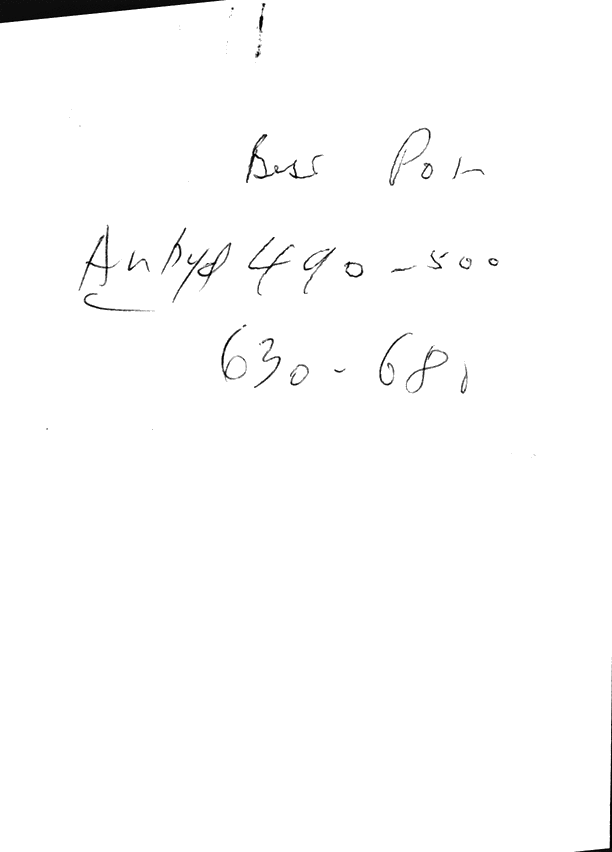 Best Pon
Anhyd 490-500
630-681